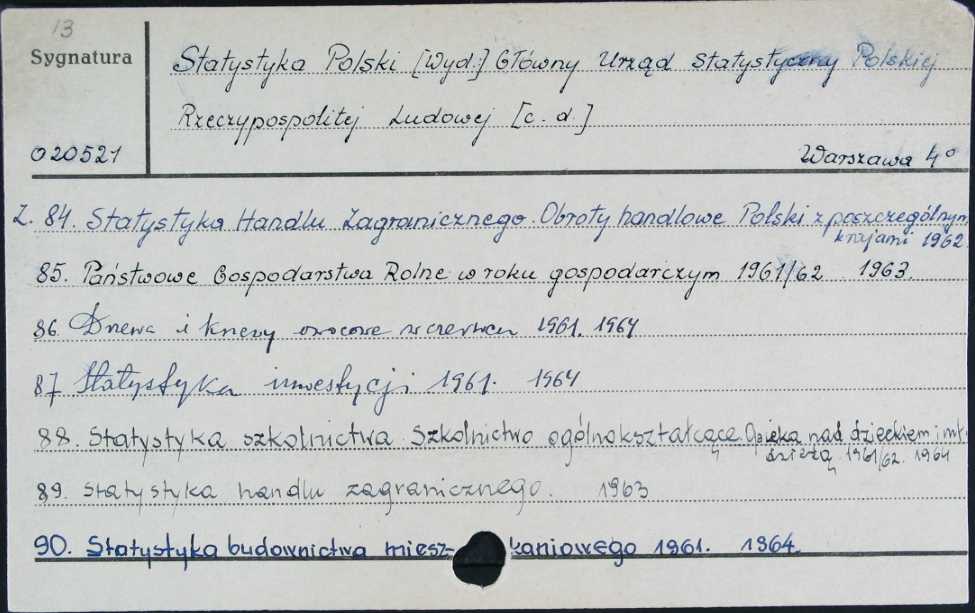 13
Sygnatura
Statystyka Polski [Wyd.] Główny Urząd Statystyczny Polskiej
Rzeczypospolitej Ludowej [c.d.]
020521
Warszawa 4°
Z. 84. Statystyka Handlu Zagranicznego. Obroty handlowe Polski z poszczególnym
krajami 1962
85. Państwowe Gospodarstwa Rolne w roku gospodarczym 1961/62 1963.
86 Drzewa i krzewy owocowe w czerwcu 1961. 1964
87 Statystyka inwestycji 1961. 1964
88. Statystyka szkolnictwa. Szkolnictwo ogólnokształcące. Opieka nad dzieckiem i mło
dzieżą 1961/62. 1964
89. Statystyka handlu zagranicznego. 1963
90. Statystyka budownictwa miesz-kaniowego 1961. 1964.